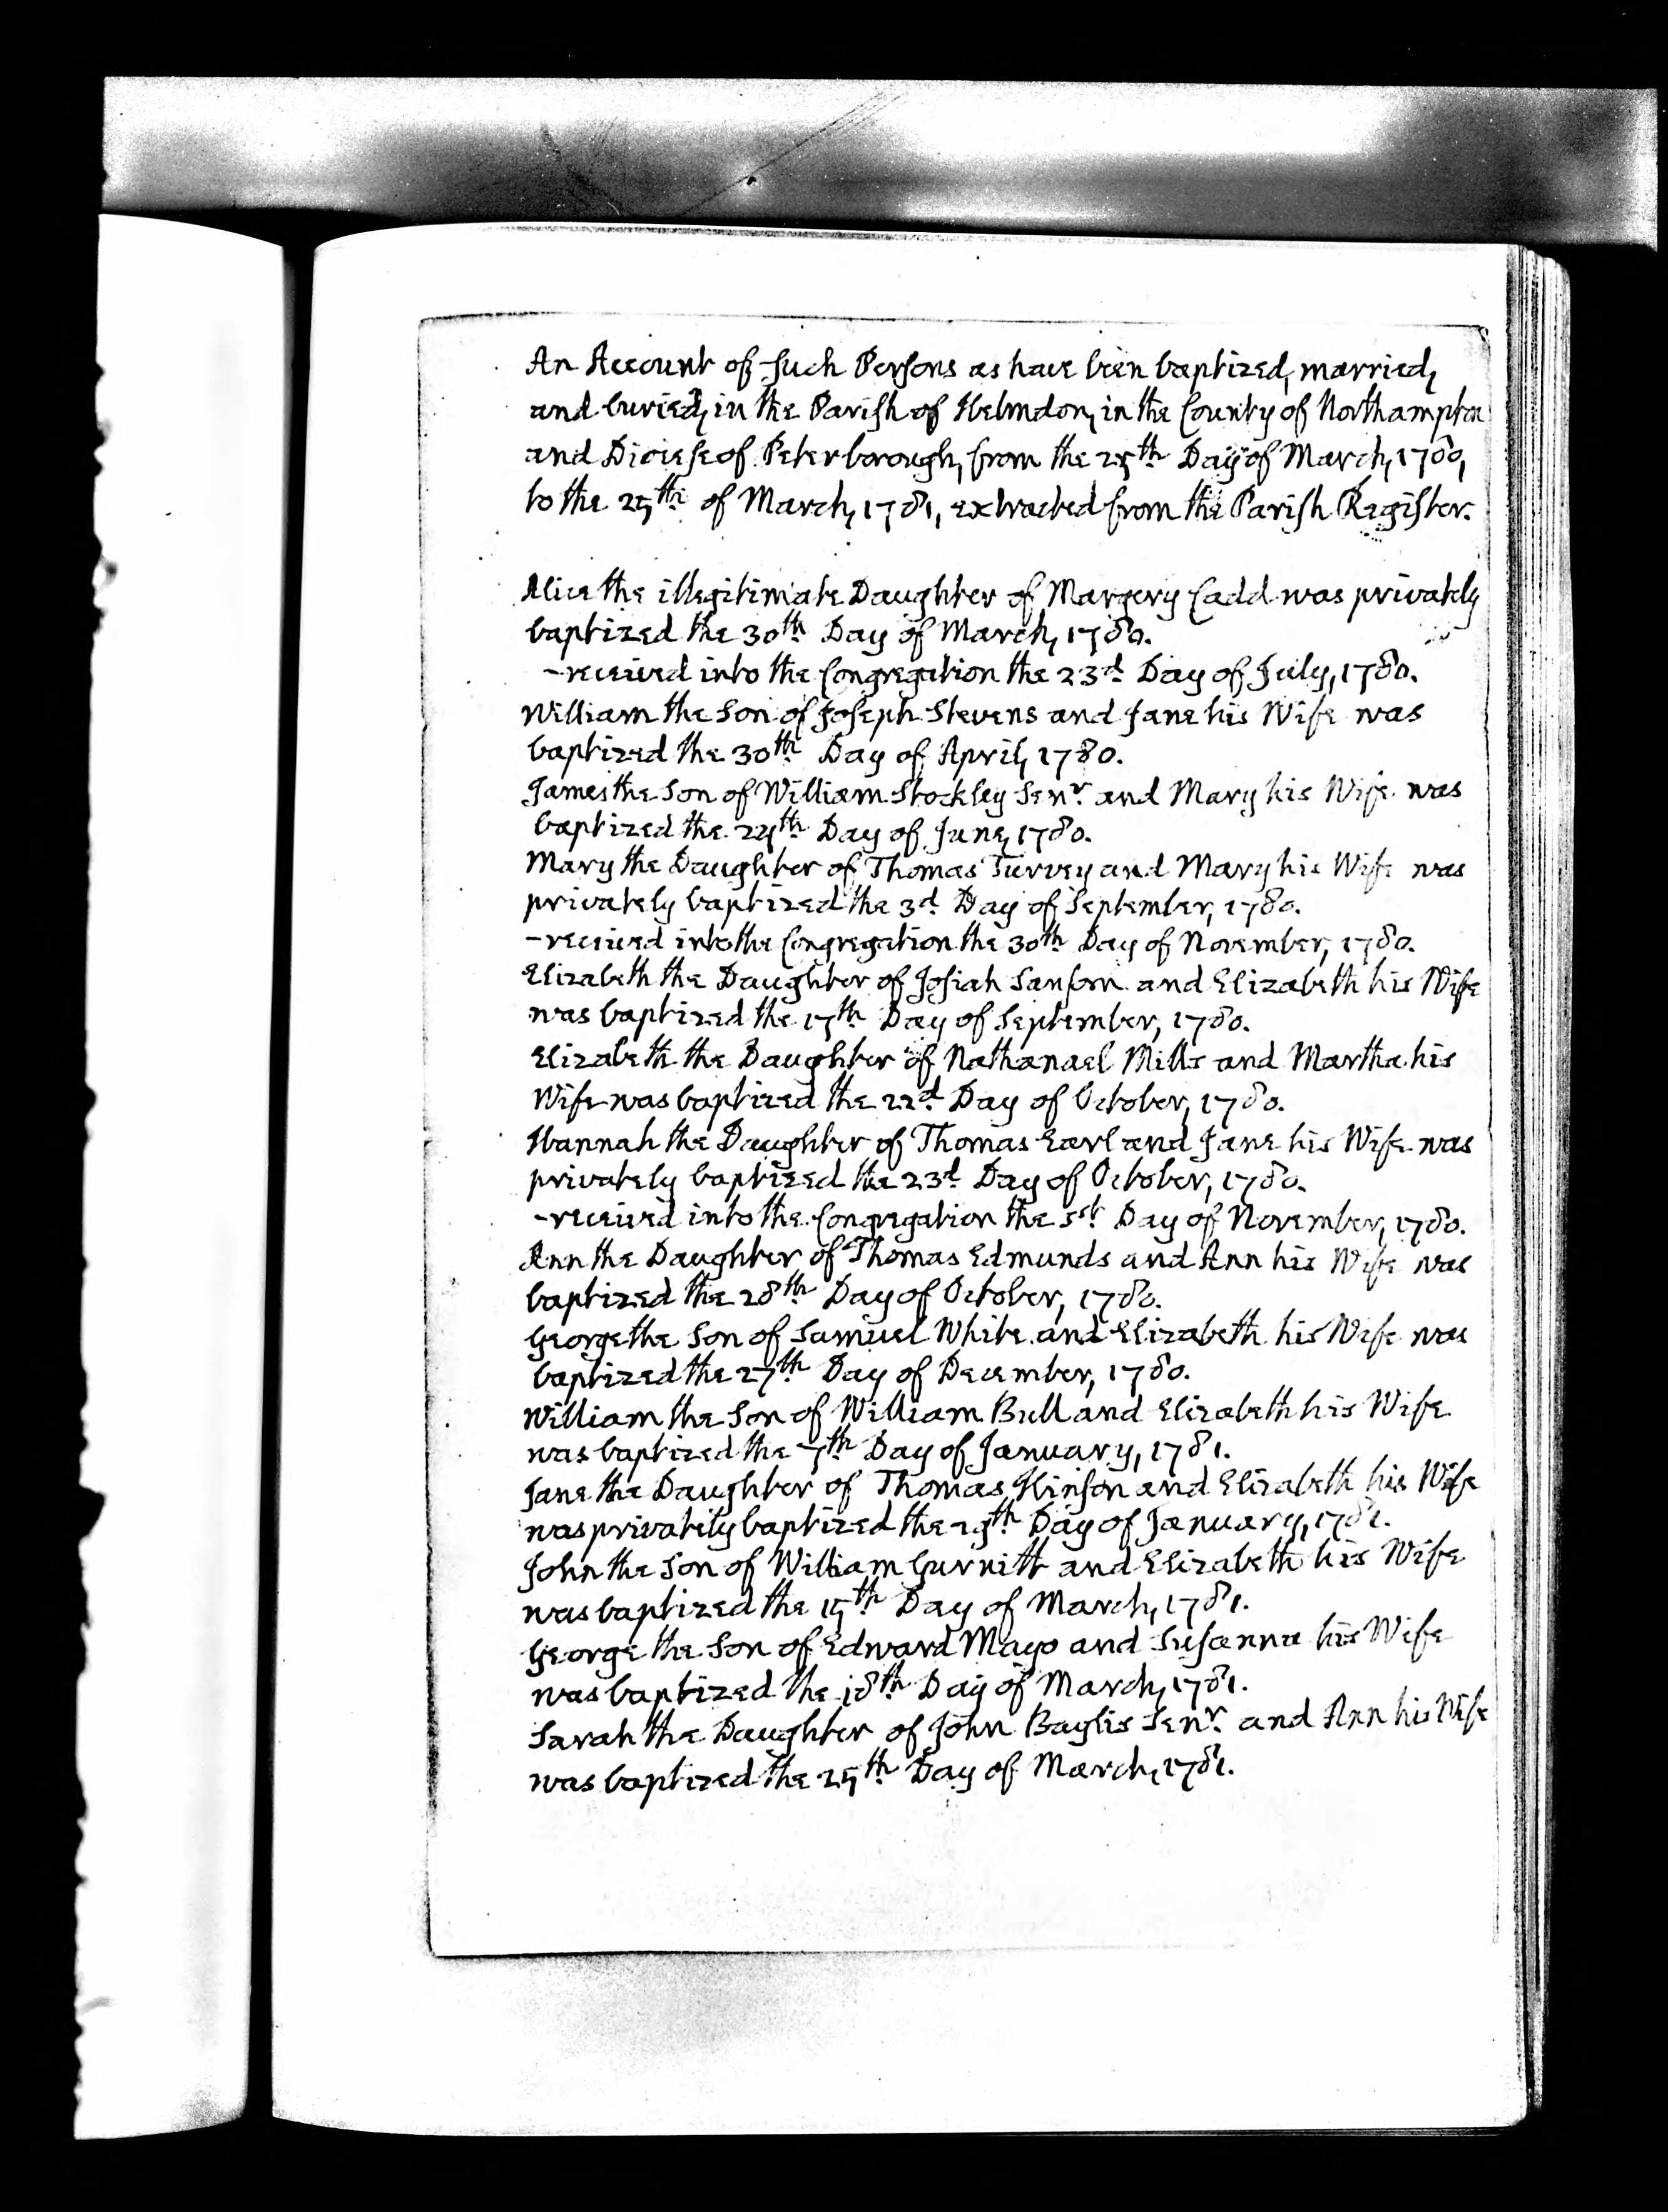 An Account of such Persons as have been baptized, married,
and buried, in the Parish of Helmdon, in the County of Northampton
and Diocese of Peterborough, from the 25th Day of March, 1780,
to the 25th of March, 1781, extracted from the Parish Register.
Alice the illegitimate Daughter of Margery Cadd was privately
baptized the 30th Day of March, 1780.
-received into the Congregation the 23d Day of July, 1780.
William the Son of Joseph Stevens and Jane his Wife was
baptized the 30th Day of April, 1780.
James the Son of William Stockley Senr. and Mary his Wife was
baptized the 24th Day of June, 1780.
Mary the Daughter of Thomas Turvey and Mary his Wife was
privately baptized the 3d Day of September, 1780.
-received into the Congregation the 30th Day of November, 1780.
Elizabeth the Daughter of Josiah Sansom and Elizabeth his Wife
was baptized the 17th Day of September, 1780.
Elizabeth the Daughter of Nathanael Mills and Martha his
Wife was baptized the 22d Day of October, 1780.
Hannah the Daughter of Thomas Earl and Jane his Wife was
privately baptized the 23d Day of October, 1780.
-received into the Congregation the Day of November, 1780.
Ann the Daughter of Thomas Edmunds and Ann his Wife was
baptized the 28th Day of October, 1780.
George the Son of Samuel White and Elizabeth his Wife was
baptized the 27th Day of December, 1780.
William the Son of William Bull and Elizabeth his Wife
was baptized the 7th Day of January, 1781.
Jane the Daughter of Thomas Hinson and Elizabeth his Wife
was privately baptized the 29th Day of January, 1781.
John the Son of William Gurnitt and Elizabeth his Wife
was baptized the 15th Day of March, 1781.
George the Son of Edward Mayo and Susanna his Wife
was baptized the 18th Day of March, 1781.
Sarah the Daughter of John Baylis Senr. and Ann his Wife
was baptized the 25th Day of March, 1781.